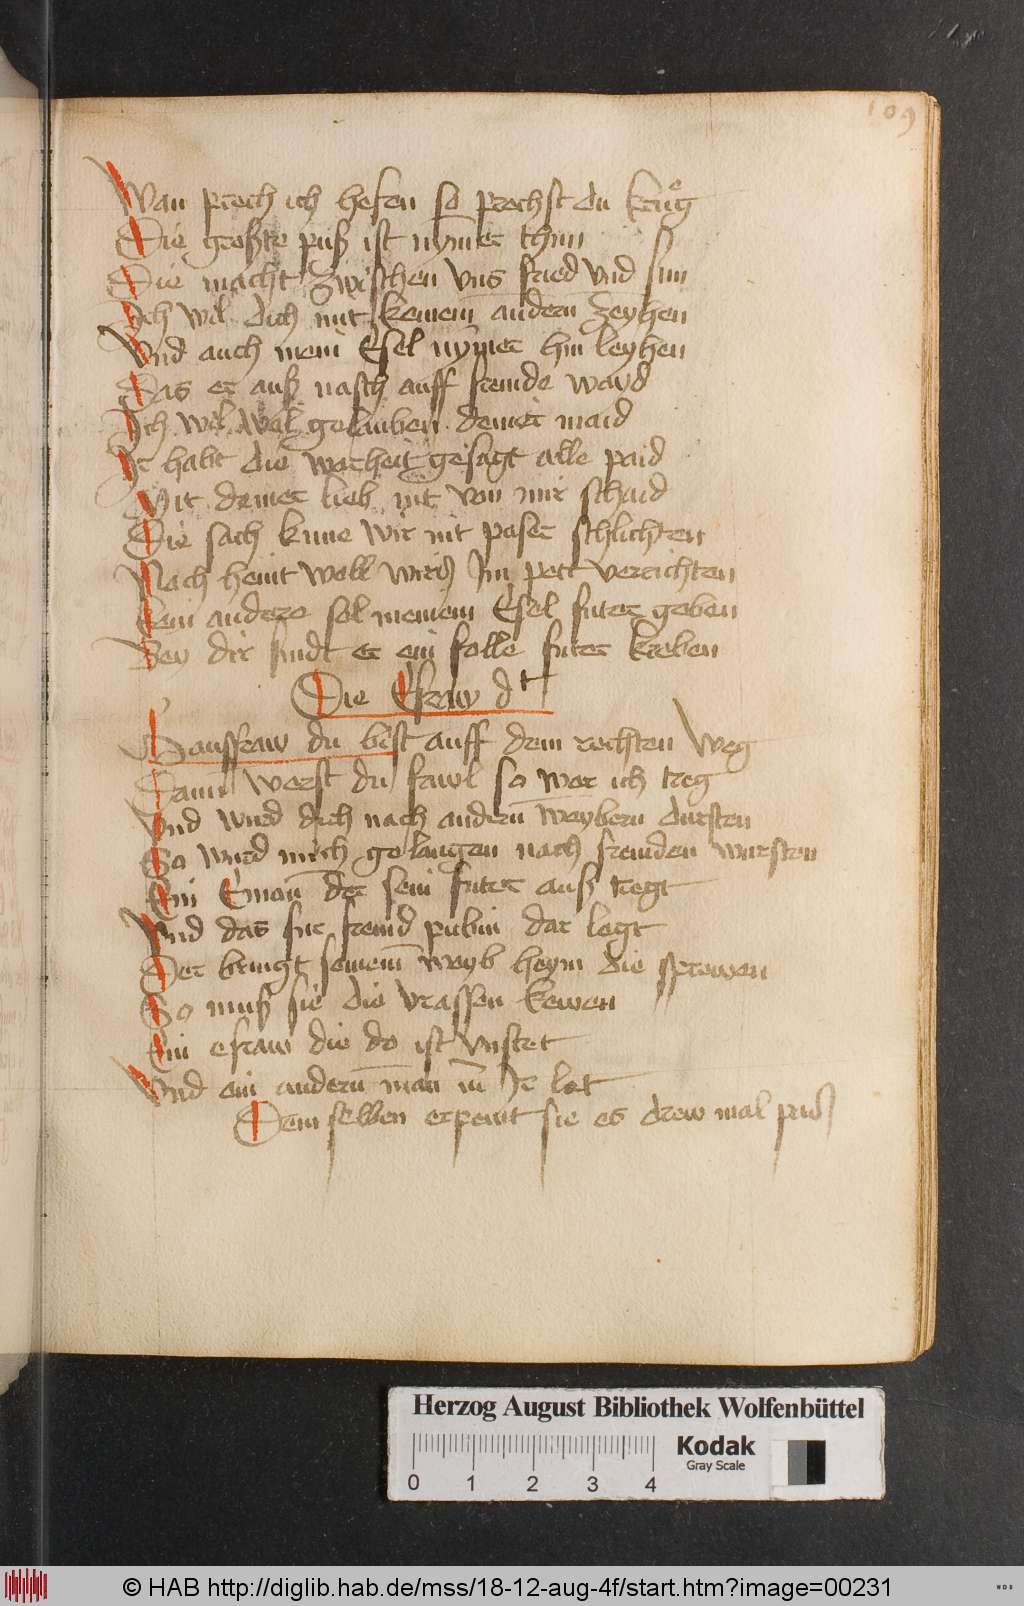 109
Wan prech ich hefen so prechst du krůg
Die groste puß ist nymer thun
Die macht zwischen vns fried vnd sun
Ich wil dich mit keinem andern zeyhen
Vnd auch mein Esel nymer hin leyhen
Das er auß nasch auff fremde wayd
Ich wil wol gelauben deiner maid
Ir habt die warheit gesagt alle paid
Mit deiner lieb nit von mir schaid
Die sach kune wir nit paser schlichten
Nach heint woll wirß Im pett verrichten
Kein andere sol meinem Esel futer geben
Bey dir findt er ein folle futer kreben
Die Efraw dt
Haußfraw du bist auff dem rechsten weg
Dann werst du fawl so wer ich treg
Vnd wurd dich nach andern weybern dursten
So wurd mich gelangen nach fremden wursten
Ein Eman der sein futer auß tregt
Vnd das fur fremd pubin dar legt
Der bringt seinem weyb heym die sprewen
So muß sie die vrassen kewen
Ein efraw die do ist vnstet
Vnd ein andern man in Ir let
Dem selben erpewt sie es drew mal
Herzog August Bibliothek Wolfenbüttel
0 1 2 3 4
Kodak
Gray Scale
© HAB http://diglib.hab.de/mss/18-12-aug-4f/start.htm?image=00231